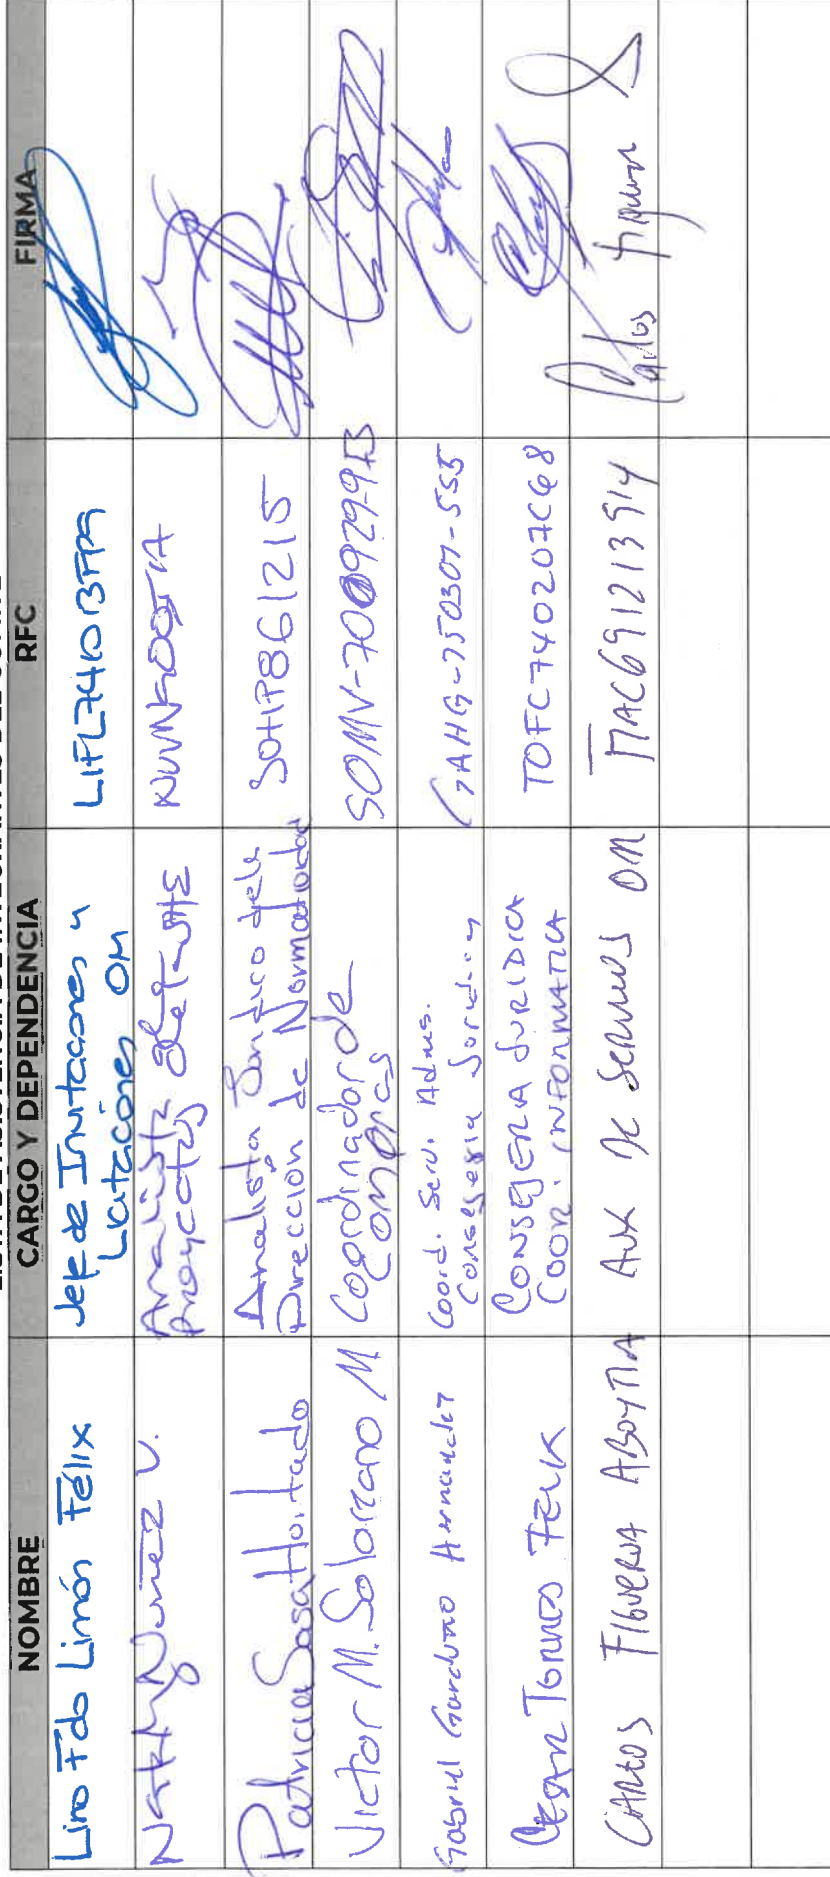 NOMBRE CARGO Y DEPENDENCIA RFC FIRMA
Lino Fdo Limón Félix
Jefe de Invitaciones y
Licitaciones OM
Nathy Nuñez V.
Analista
Proyectos
Patricia Sosa Hurtado
Analista Jurídico de la
Dirección de Normatividad
SOHP861215
Victor M. Solorzano M
Coordinador de
Compras
SOMV-700929-
Gabriel Garduño Hernandez
Coord. Serv. Admvs.
Consejería Jurídica
GAHG-750307-555
Cesar Torres Felix
CONSEJERIA JURIDICA
COOR. INFORMATICA
TOFC740207C68
CARLOS FIGUEROA ABOYTIA
AUX DE SERVICIOS OM
FIAC691213914
Carlos Figueroa